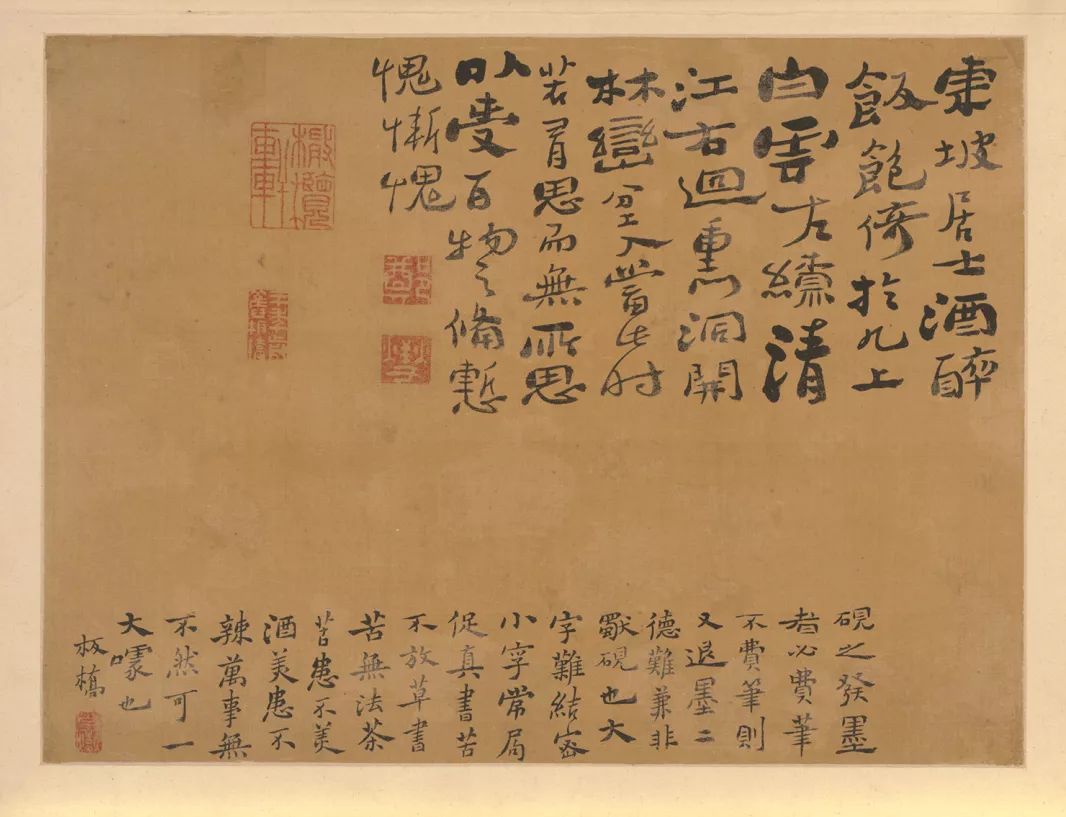 東坡居士酒醉
飯飽倚於几上
白雲左繚清
江右迴重門洞開
林巒坌入當此时
若有思而無所思
以受百物之備慙
愧慚愧
硯之發墨
者必費筆
不費筆則
又退墨二
德難兼非
獨硯也大
字難結密
小字常局
促真書苦
不放草書
苦無法茶
苦患不美
酒美患不
辣萬事無
不然可一
大噱也
板橋